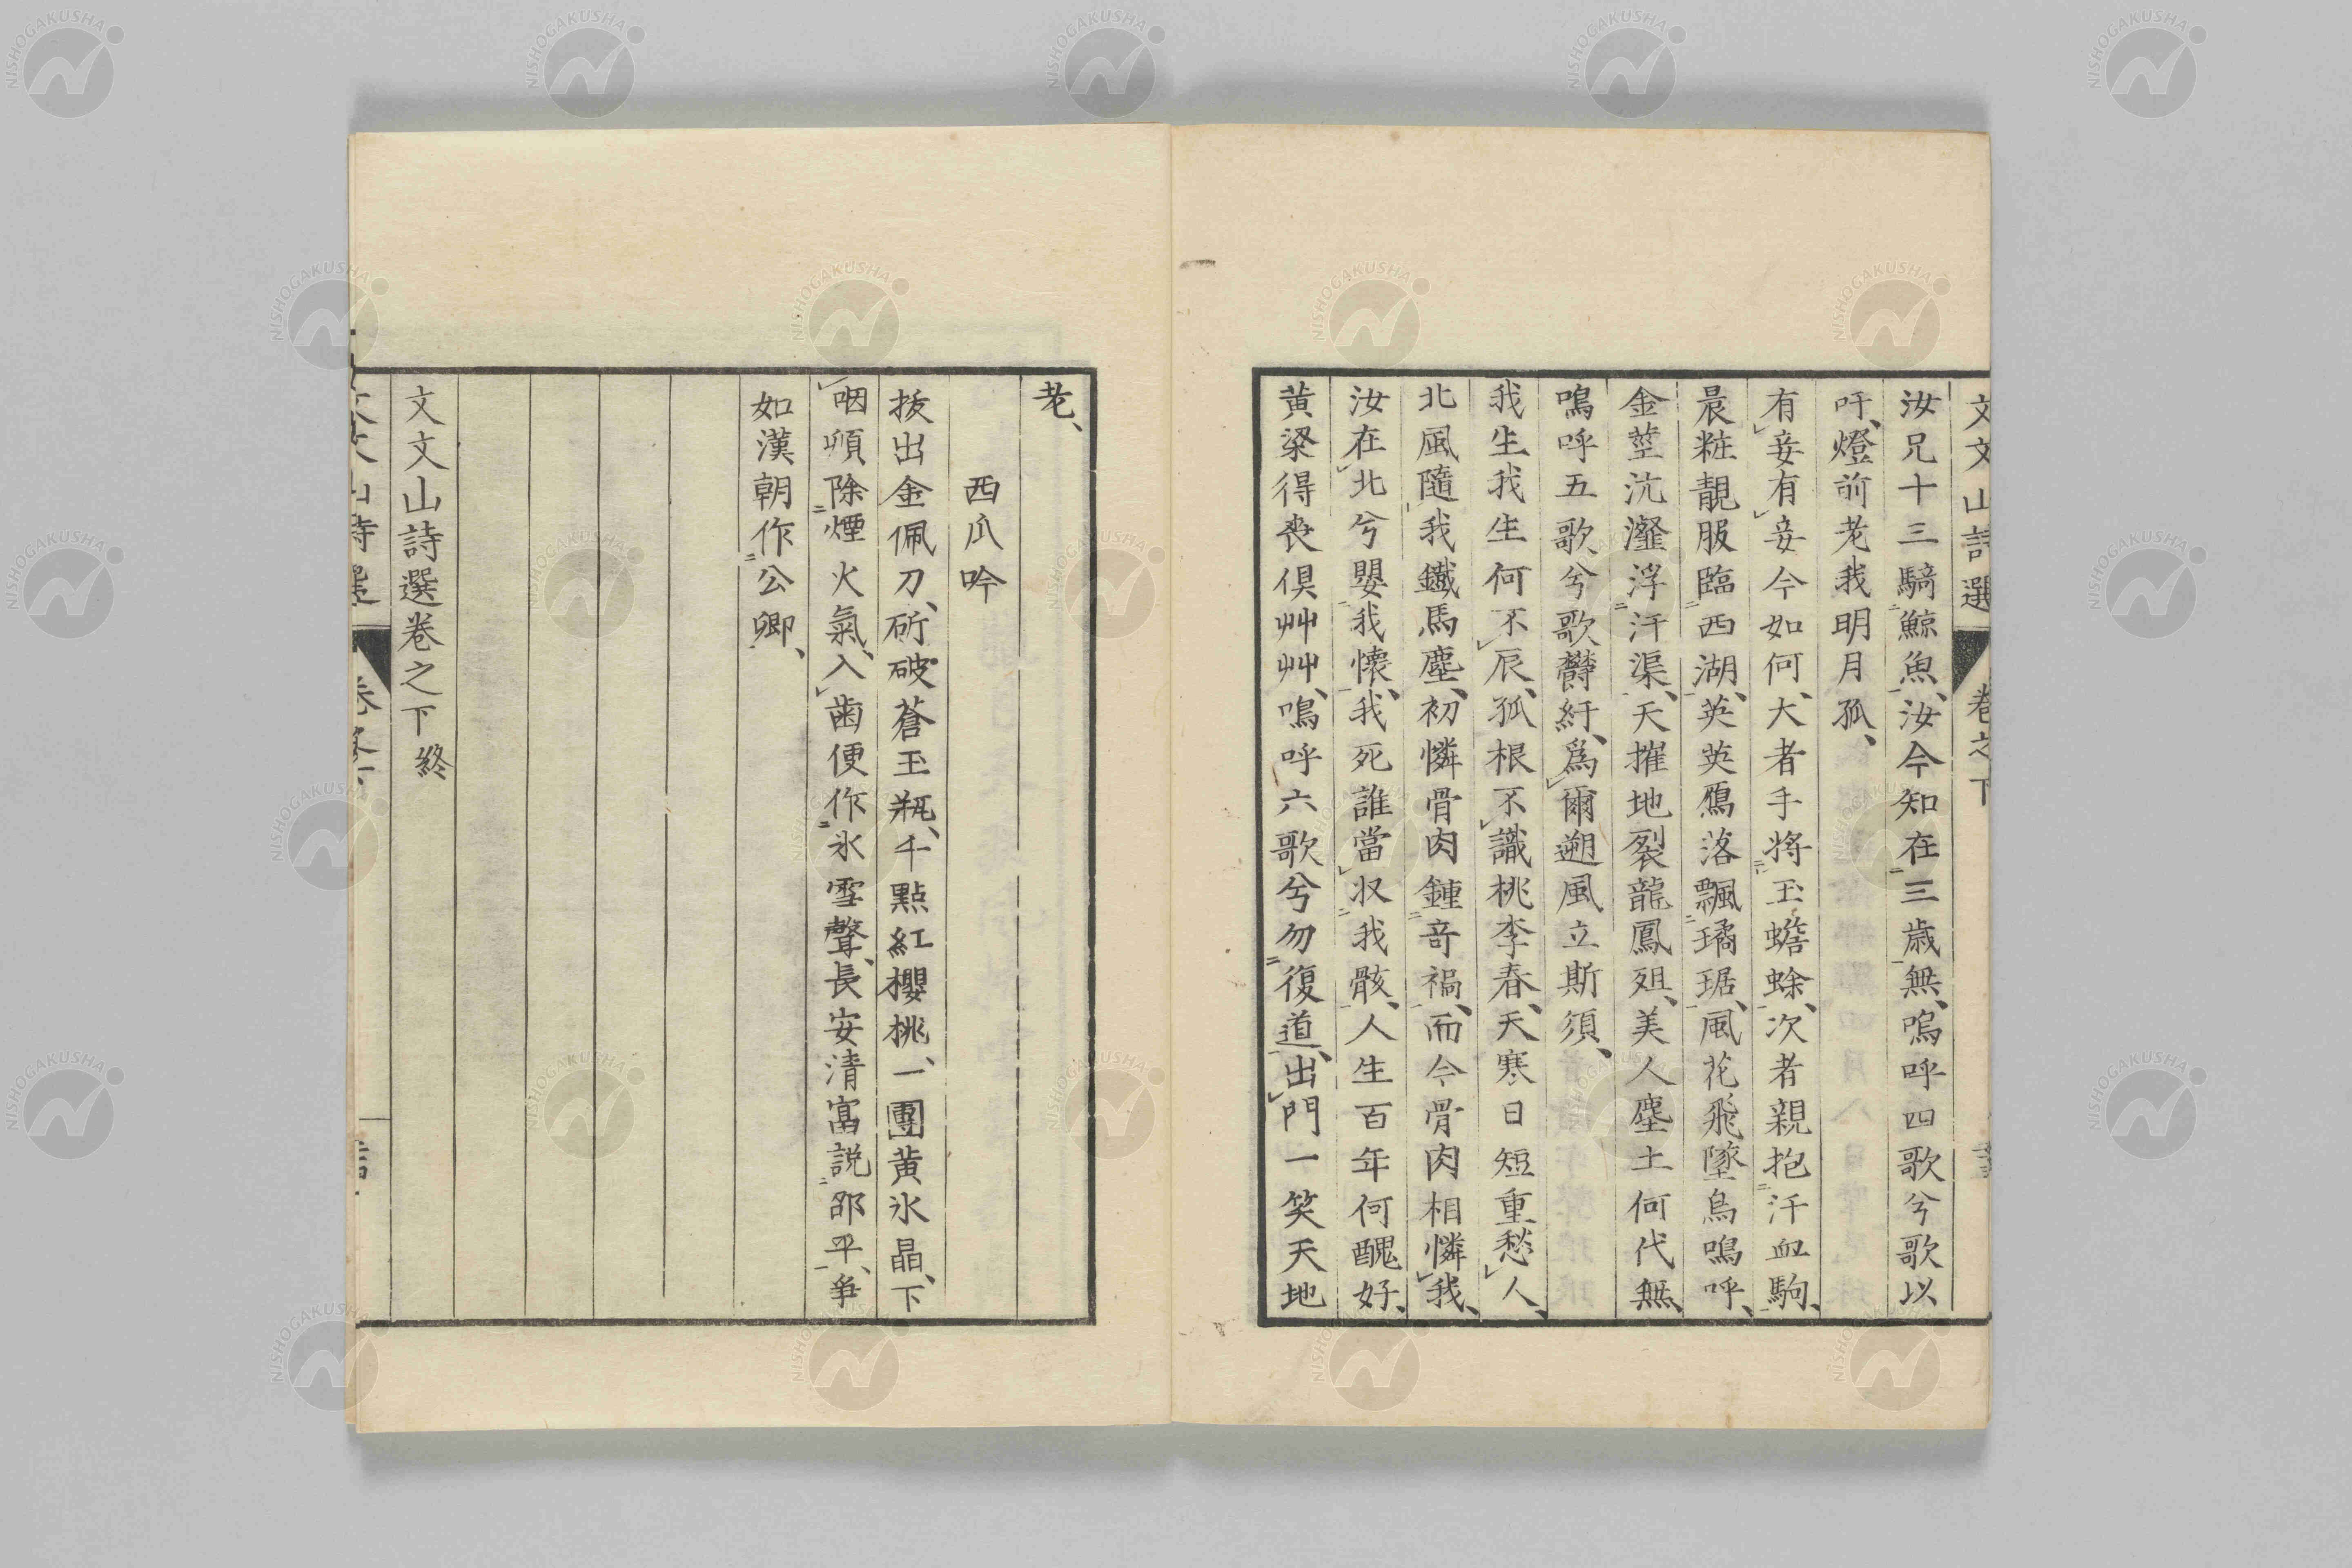 文文山詩選 卷之下
汝兄十三騎鯨魚、汝今知在三歳無、嗚呼四歌兮歌以
吁、燈前老我明月孤、
有妾有妾今如何、大者手將玉蟾蜍、次者親抱汗血駒、
晨粧靚服臨西湖、英英鴈落飄璚琚、風花飛墜鳥鳴呼、
金莖沆瀣浮汙渠、天摧地裂龍鳳殂、美人塵土何代無、
鳴呼五歌兮歌欝紆、爲爾遡風立斯須、
我生我生何不辰、孤根不識桃李春、天寒日短重愁人、
北風隨我鐵馬塵、初憐骨肉鍾竒禍、而今骨肉相憐我、
汝在北兮嬰我懷、我死誰當収我骸、人生百年何醜好、
黄粱得喪倶艸艸、鳴呼六歌兮勿復道、出門一笑天地
老、
西瓜吟
拔出金佩刀、斫破蒼玉瓶、千點紅櫻桃、一團黄氷晶、下
咽頓除煙火氣、入歯便作氷雪聲、長安清富説邵平、爭
如漢朝作公卿、
文文山詩選卷之下終